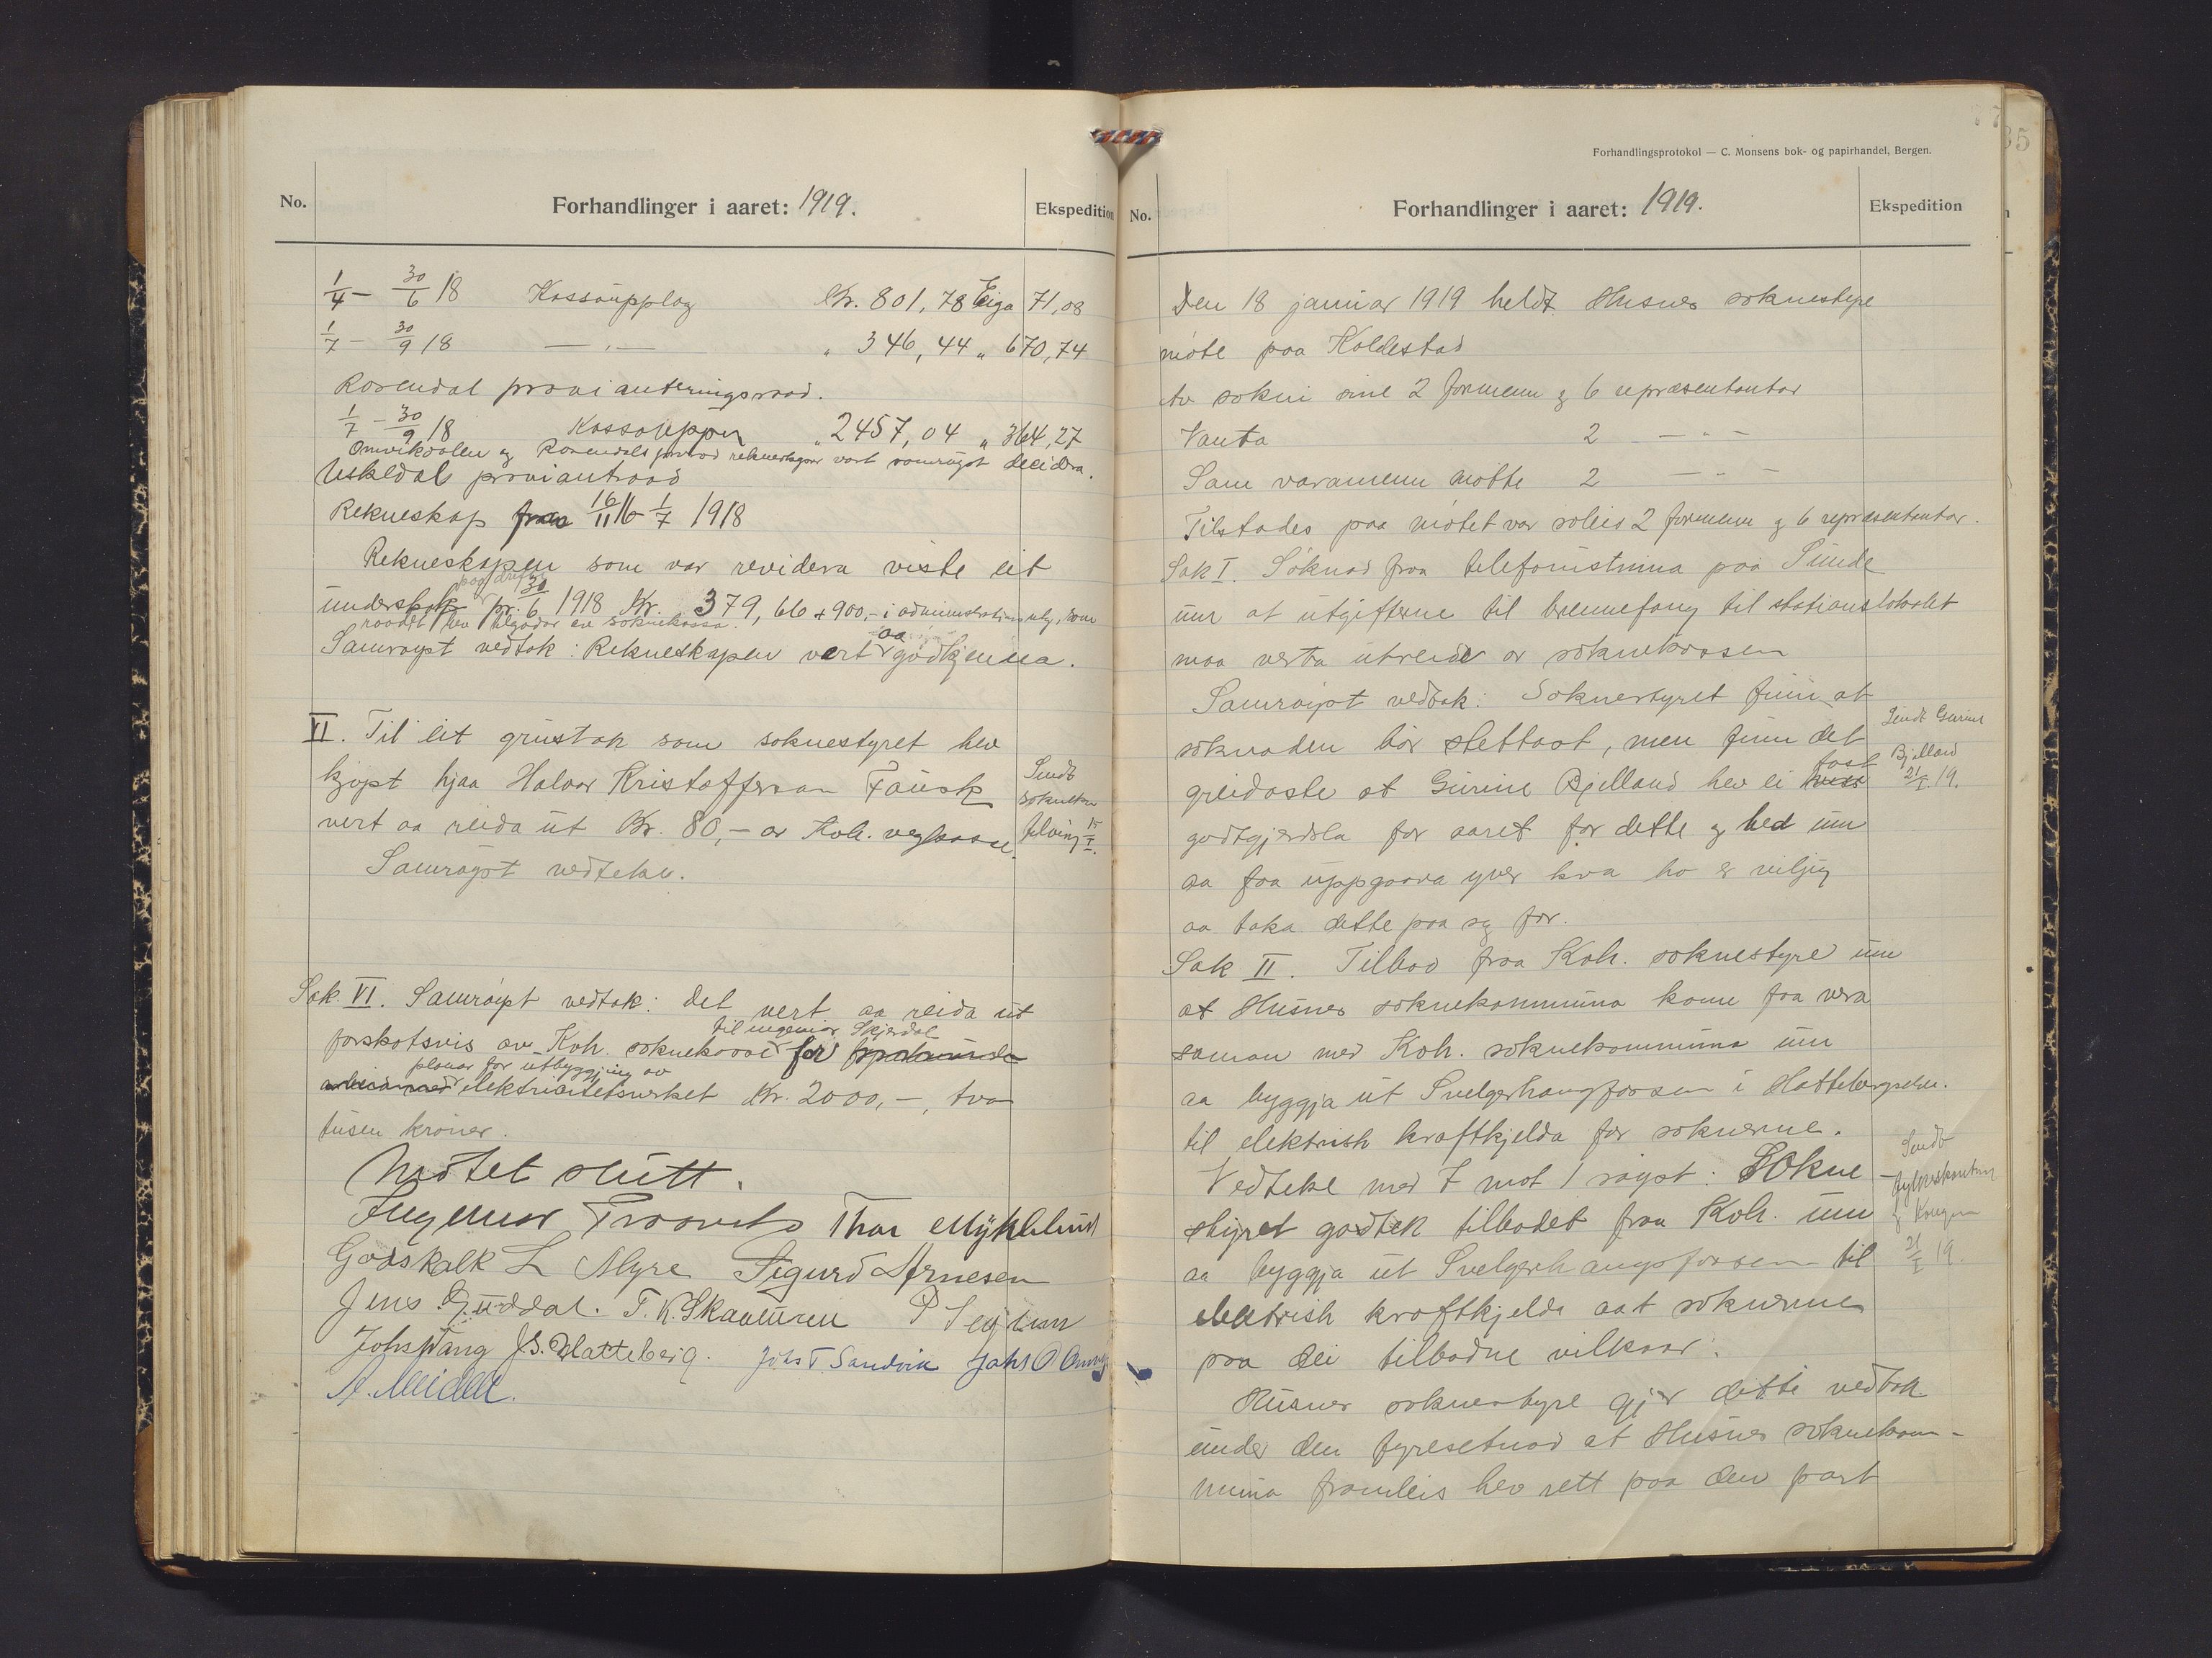 No.
Forhandlinger i aaret: 1919.
Ekspedition
1/4 - 30/6 18 Kassaupplag Kr. 801,78 Eiga 71,08
1/7 - 30/9 18 — " — " 346,44 " 670,74
Rosendal provianteringsraad.
1/7 - 30/9 18 Kassauppg " 2457,04 " 364,27
Omvikdalen og Rosendals forraad rekneskapar vart samrøyst decidera.
Uskedal proviantraad
Rekneskap fraa 16/11 16 - 1/7 1918
Rekneskapen som var revidera viste eit
paa drifta
underskot pr. 30/6 1918 Kr. 379,66 + 900,- i administrationsutg. som
raadet hev tilgodar av soknekassa.
Samrøyst vedtak: Rekneskapen vert aa godkjenna.
VI. Til eit grustak som soknestyret hev
kjøpt hjaa Halvor Kristofferson Fausk
vert aa reida ut Kr. 80,- av Kvh. vegkasse.
Samrøyst vedteke.
Sendt
soknekas
15/I.
Sak VI. Samrøyst vedtak: det vert aa reida ut
til ingeniør Skjerdal
forskotsvis av Kvh. soknekasse for
planar for utbyggjing av
elektricitetsverket Kr. 2000,-, tvo
tusen kroner.
Møtet slutt.
Ingemar Thor Myklebust
Godskalk L Myre Sigurd Arnesen
Jens Guddal. T. K. Skaaluren P Seglem
Johs Vang J. S. Hatteberg. Johs T. Sandvik Johs O Omvik
A. Meidell.
Forhandlingsprotokol — C. Monsens bok- og papirhandel, Bergen.
35
No.
Forhandlinger i aaret: 1919.
Ekspedition
Den 18 januar 1919 heldt Husnes soknestyre
møte paa Holdestad
Av sokni sine 2 formenn og 6 repræsentantar
Vanta 2 — " —
Som varamenn møtte 2 — " —
Tilstades paa møtet var soleis 2 formenn og 6 repræsentantar.
Sak I. Søknad fraa telefonistinna paa Sunde
um at utgifterne til brennefang til stationslokalet
maa verta utreidde av soknekassen
Samrøyst vedtak: Soknestyret finn at
søknaden bør stettast, men finn det
greidaste at Gurine Bjelland hev ei fast
godtgjersla for aaret for dette og bed um
aa faa uppgaava yver kva ho er viljug
aa taka dette paa seg for.
Sendt Gurine
Bjelland
21/I. 19.
Sak II. Tilbod fraa Kvh. soknestyre um
at Husnes soknekommuna kome faa vera
saman med Kvh. soknekommuna um
aa byggja ut Svelgerhaugfossen i Hattebergselv.
til elektrisk kraftkjelda for soknerne.
Vedteke med 7 mot 1 røyst: Sokne
styret godtek tilbodet fraa Kvh. um
aa byggja ut Svelgerhaugsfossen til
elektrisk kraftkjelde aat soknerne
paa dei tilbodne vilkaar.
Sendt
fylkeskontor
og Kongen
21/I 19.
Husnes soknestyre gjer dette vedtak
under den fyresetnad at Husnes soknekom-
muna framleis hev rett paa den part